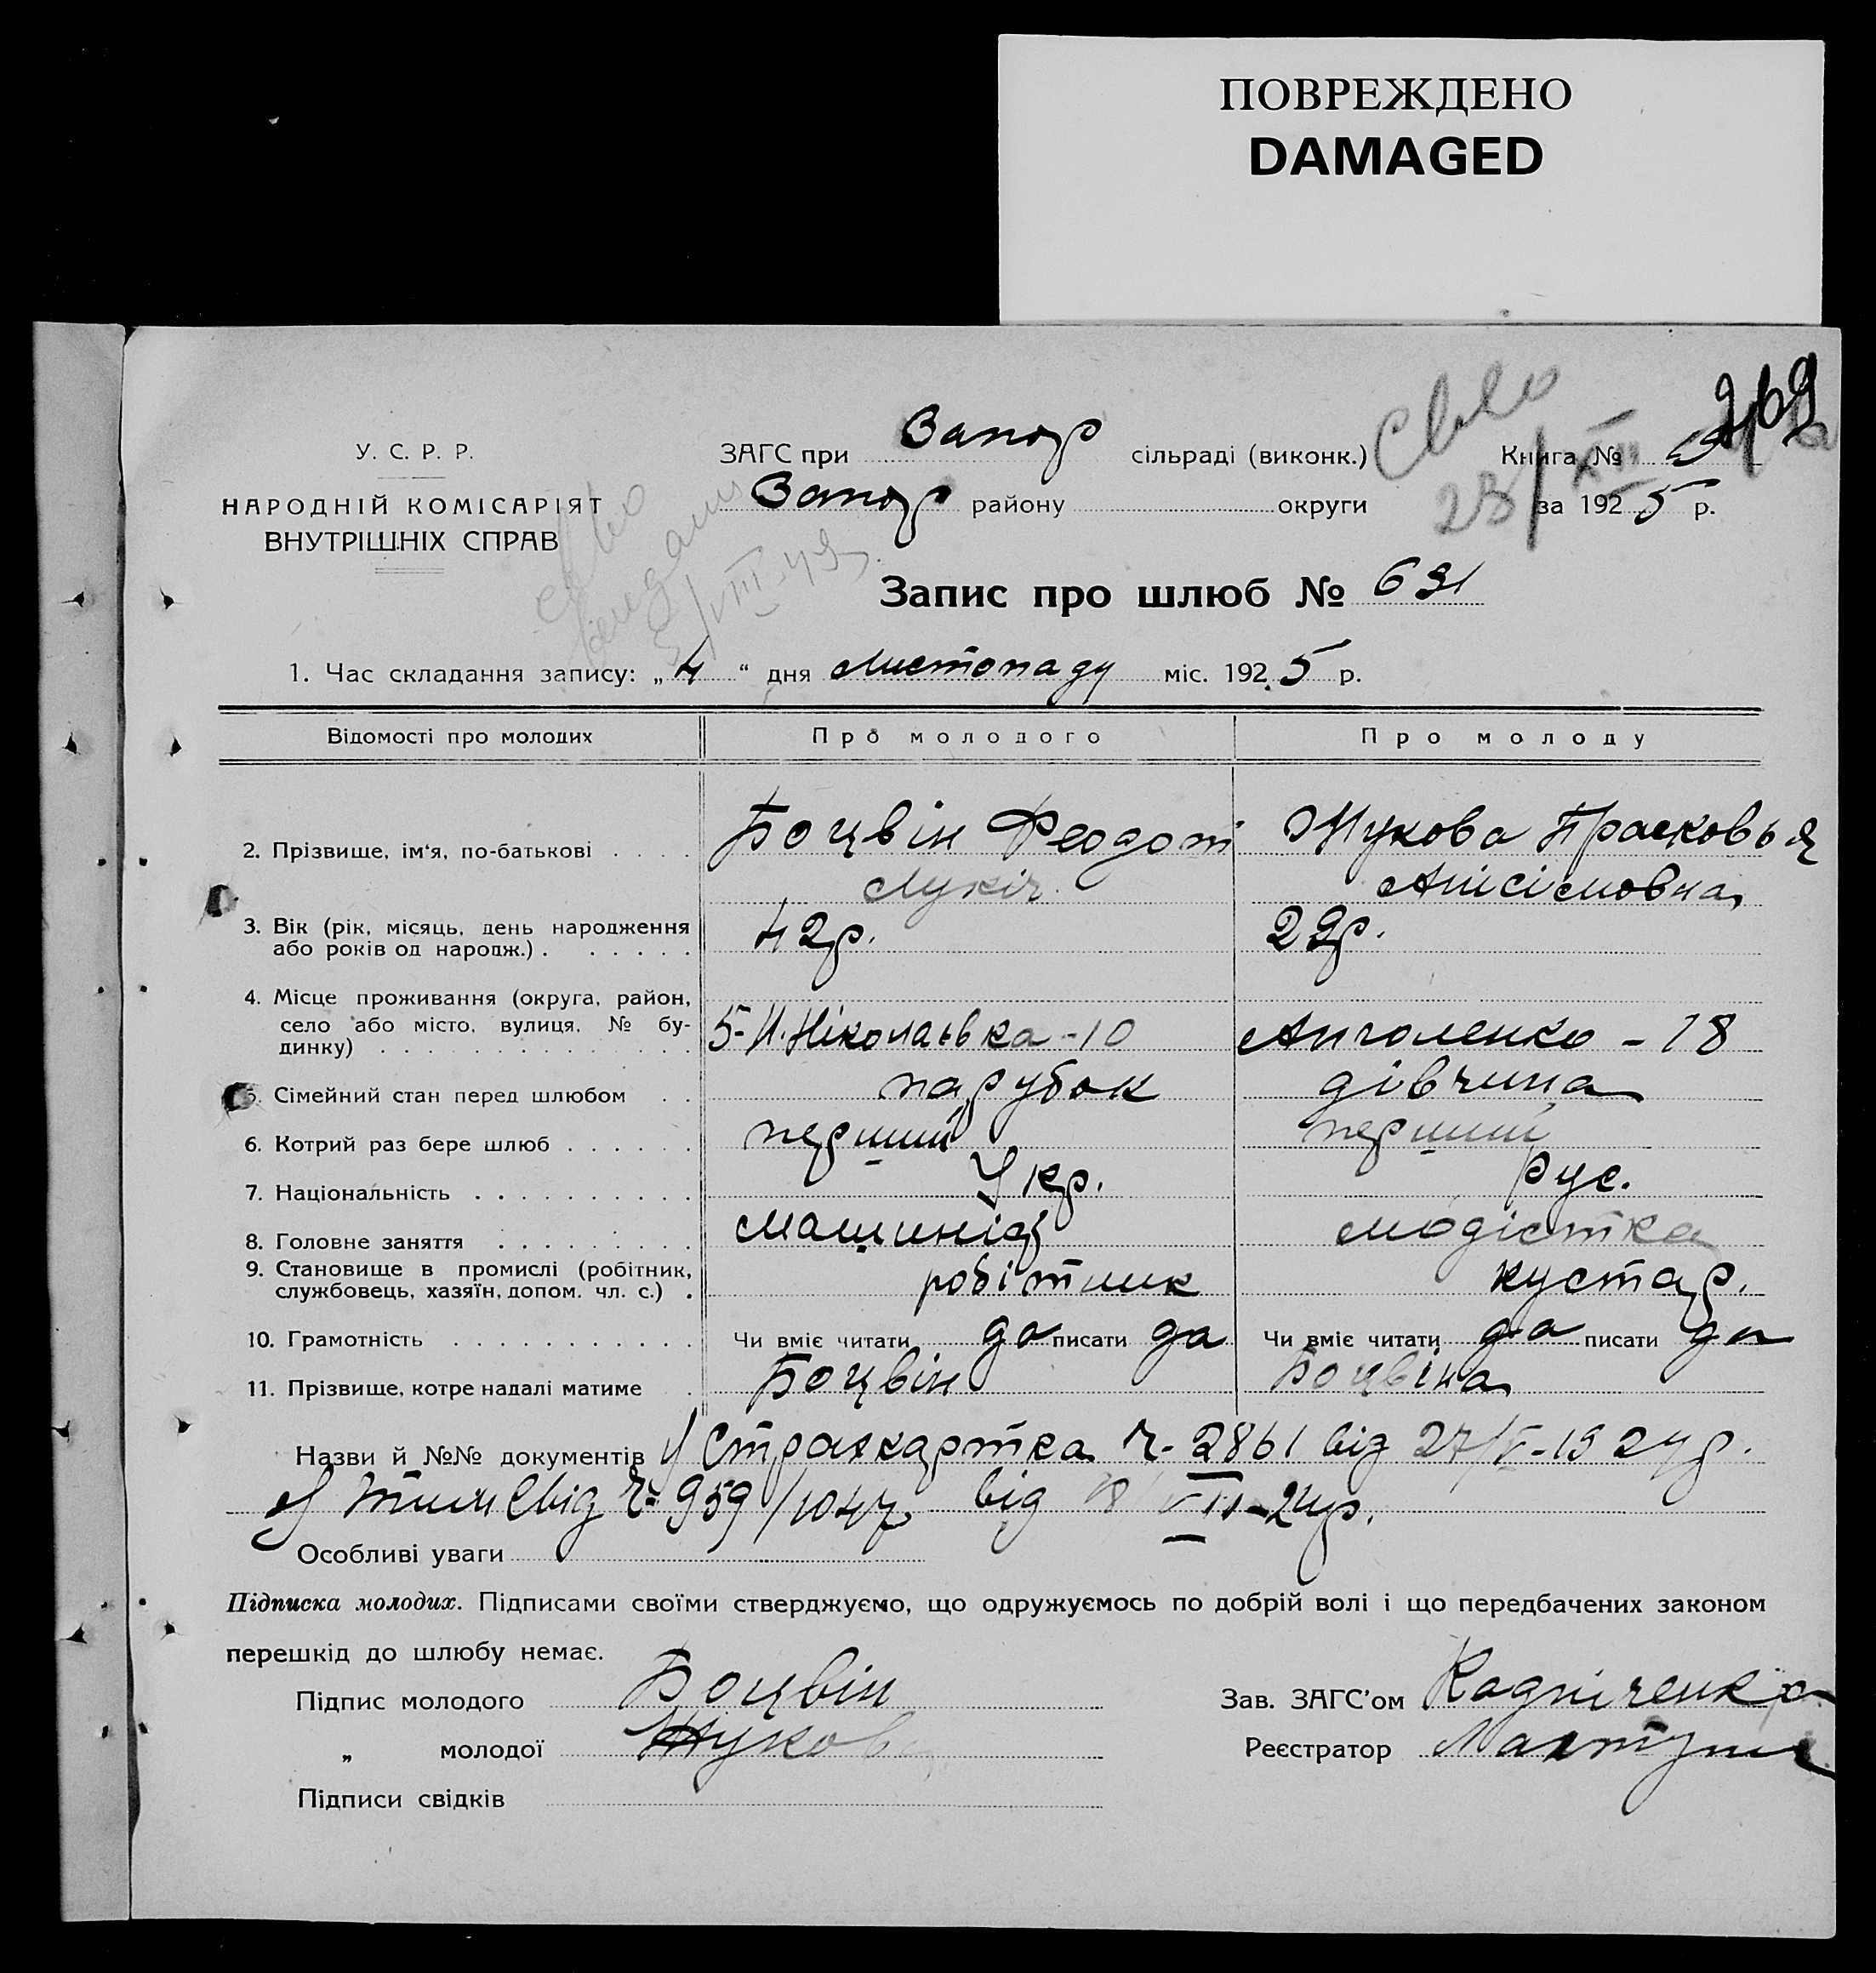 ПОВРЕЖДЕНО
DAMAGED
У. С. Р. Р.
НАРОДНІЙ КОМІСАРІЯТ
ВНУТРІШНІХ СПРАВ
269
ЗАГС при Запор сільраді (виконк.) Книга №
Запор району округи за 1925 р.
Запис про шлюб № 691
1. Час складання запису: „4“ дня Листопаду міс. 1925 р.
Відомості про молодих Про молодого Про молоду
2. Прізвище, ім'я, по-батькові Боцвін Феодот Жукова Прасковья
Лукіч Анісімовна
3. Вік (рік, місяць, день народження
або років од народж.) 42р. 22р.
4. Місце проживання (округа, район,
село або місто, вулиця, № бу-
динку) 5-Н.Ніколаівка-10 - 18
5. Сімейний стан перед шлюбом парубок дівчина
6. Котрий раз бере шлюб перший перший
7. Національність Укр. Рус.
8. Головне заняття модістка
9. Становище в промислі (робітник,
службовець, хазяїн, допом. чл. с.) робітник кустар.
10. Грамотність Чи вміє читати да писати да Чи вміє читати да писати да
11. Прізвище, котре надалі матиме Боцвін Боцвіна
Назви й №№ документів 1/ Страхкартка ч- 2861 від 27/V-1924р.
2/ Тимч Свід ч- 959/1047 від 18 VII-24р.
Особливі уваги
Підписка молодих. Підписами своїми стверджуємо, що одружуємось по добрій волі і що передбачених законом
перешкід до шлюбу немає.
Підпис молодого Боцвін Зав. ЗАГС'ом
„ молодої Жукова Реєстратор
Підписи свідків